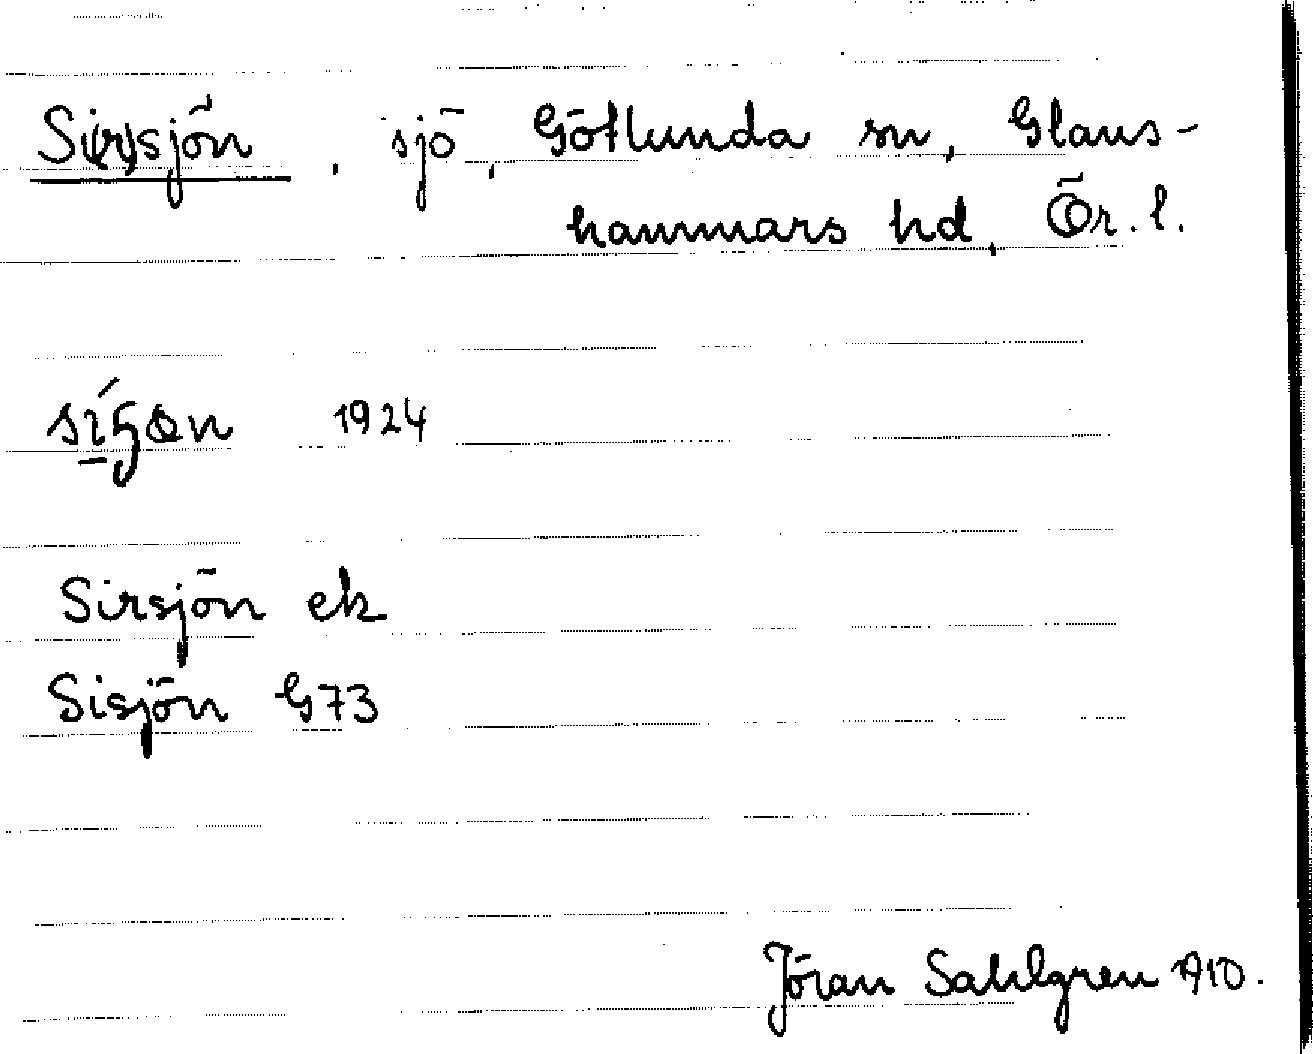 Si(r)sjön, sjö, Götlunda sn, Glans-
hammars hd, Ör. l.
1924
Sirsjön ek
Sisjön G73
Jöran Sahlgren 1910.